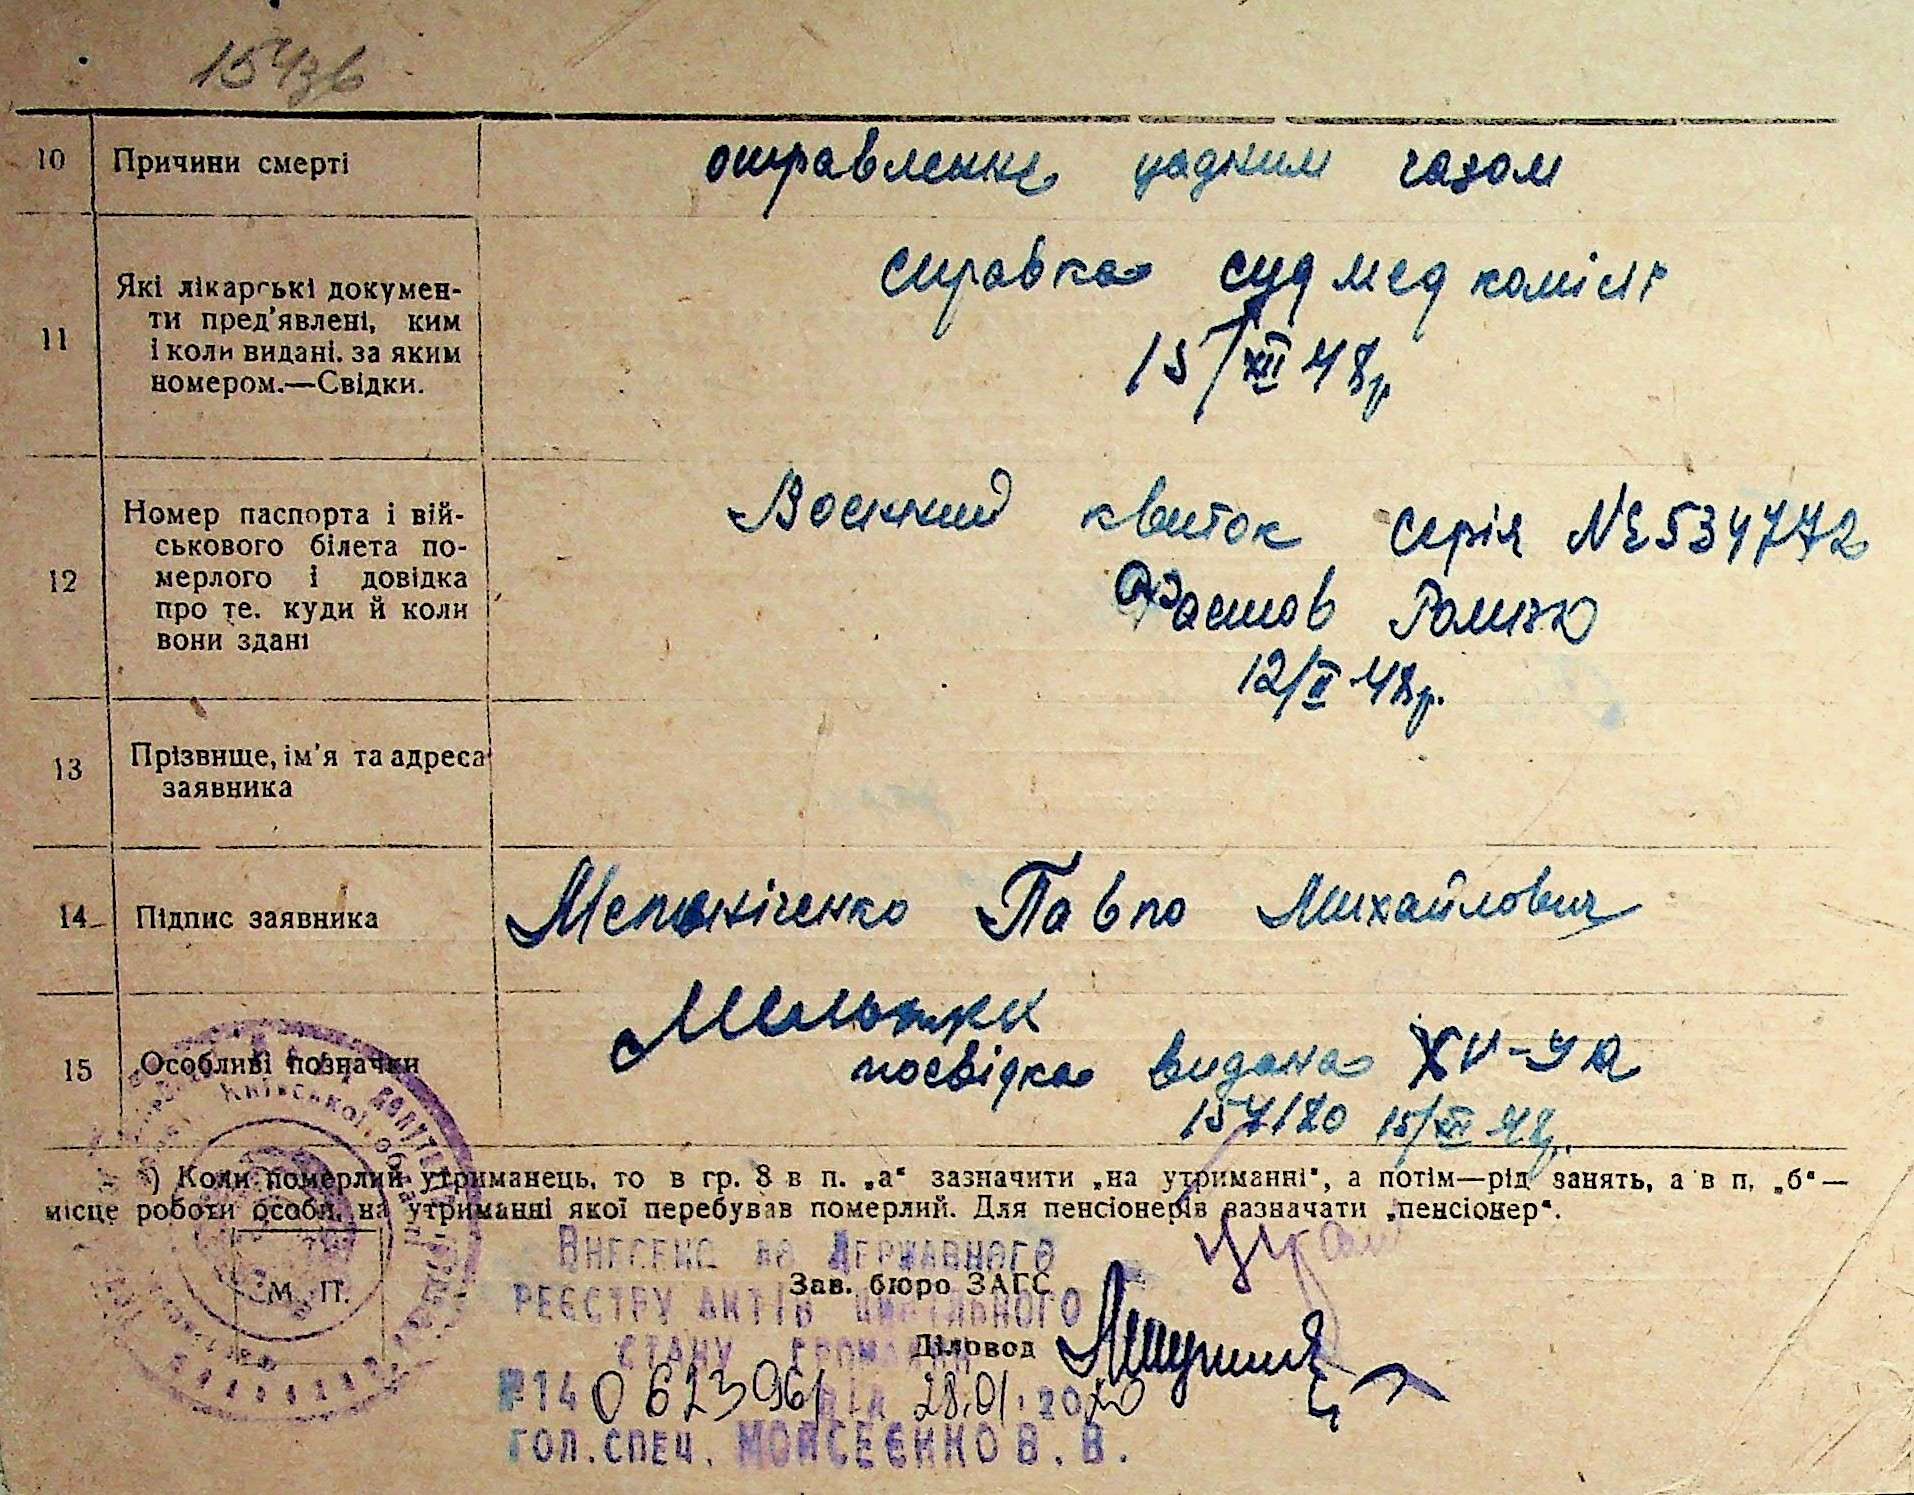 10 Причини смерті
отравлення чадним газом
11 Які лікарські докумен-
ти пред'явлені, ким
і коли видані, за яким
номером.—Свідки.
справка суд мед комісії
15/XII 48р
12 Номер паспорта і вій-
ськового білета по-
мерлого і довідка
про те, куди й коли
вони здані
Воєнний квиток серія № 534772
Фастов
12/II 48р.
13 Прізвище, ім'я та адреса
заявника
14 Підпис заявника
Мельніченко Павло Михайлович
15 Особливі позначки
посвідка видана
157120 15/XII 48р.
*) Коли померлий утриманець, то в гр. 8 в п. „а“ зазначити „на утриманні“, а потім—рід занять, а в п. „б“—
місце роботи особи, на утриманні якої перебував померлий. Для пенсіонерів зазначати „пенсіонер“.
Внесено до Державного
Зав. бюро ЗАГС
реєстру актів цивільного
Діловод
стану громадян
М. П.
№14 0623961 від 28.01.2020
гол.спец. Моисеєнко В. В.